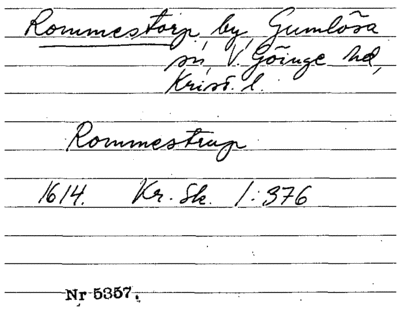 Rommestorp by, Gumlösa
sn, V. Göinge hd,
Krist. l.
Rommestrup
1614. Kr. Sk. 1:376
Nr 5357.